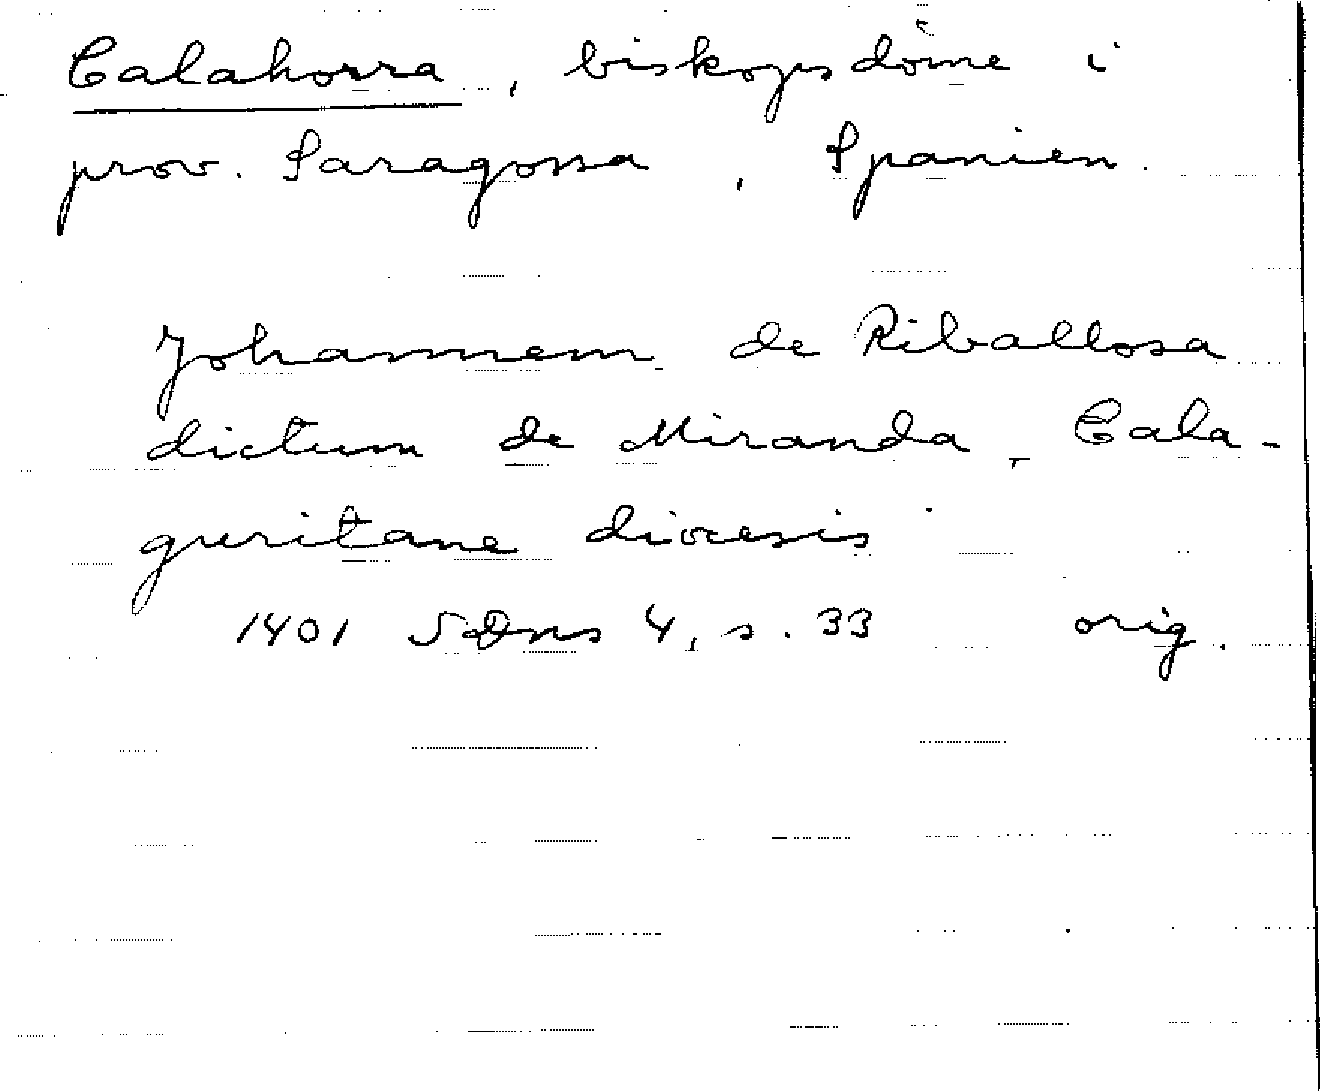 Calahorra, biskopsdöme i
prov. Saragossa, Spanien.
Johannem de Riballosa
dictum de Miranda, Cala-
guritane diocesis
1401 SDns 4, s. 33 orig.